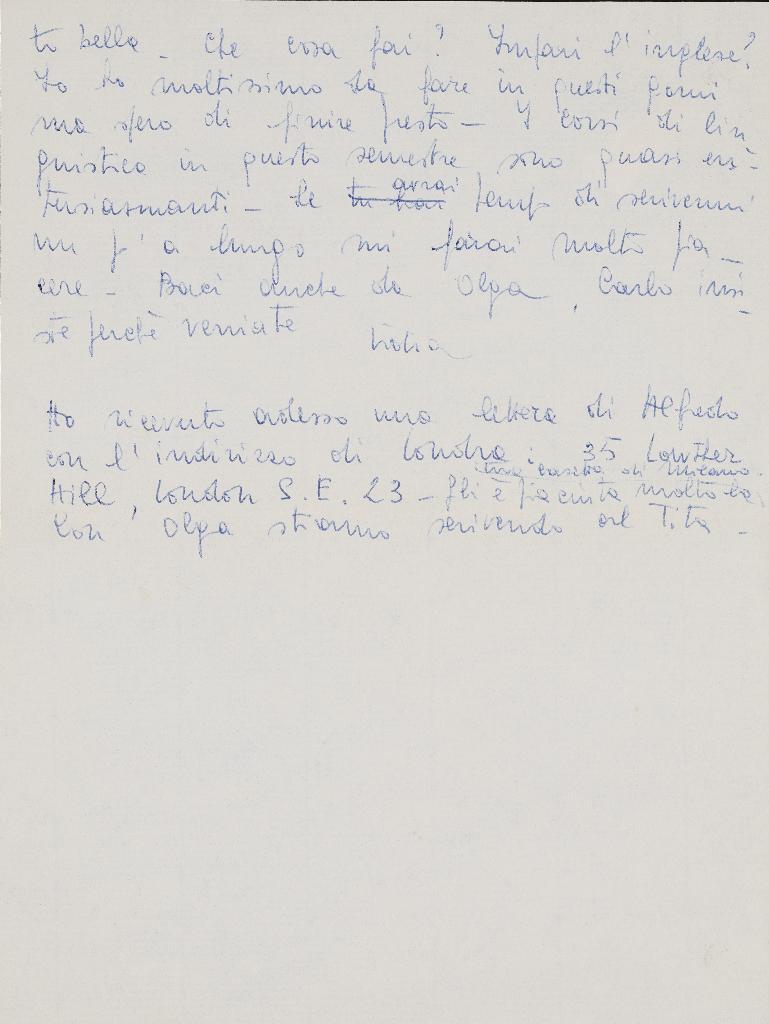 to bella - Che cosa fai? Impari l'inglese?
Io ho moltissimo da fare in questi gorni
ma spero di finire presto - I corsi di lin=
guistica in questo semestre sono quasi en=
tusiasmanti - Se tu hai avrai tempo di scrivermi
un po' a lungo mi farai molto pia_
cere - Baci anche da Olga, Carlo insi_
ste perchè veniate
Ho ricevuto adesso una lettera di Alfredo
con l'indirizzo di Londra: 35 Lowther
Hill, London S.E. 23 - Gli è piaciuta molto la
tua casetta di Milano.
Con Olga stiamo scrivendo al Tita -